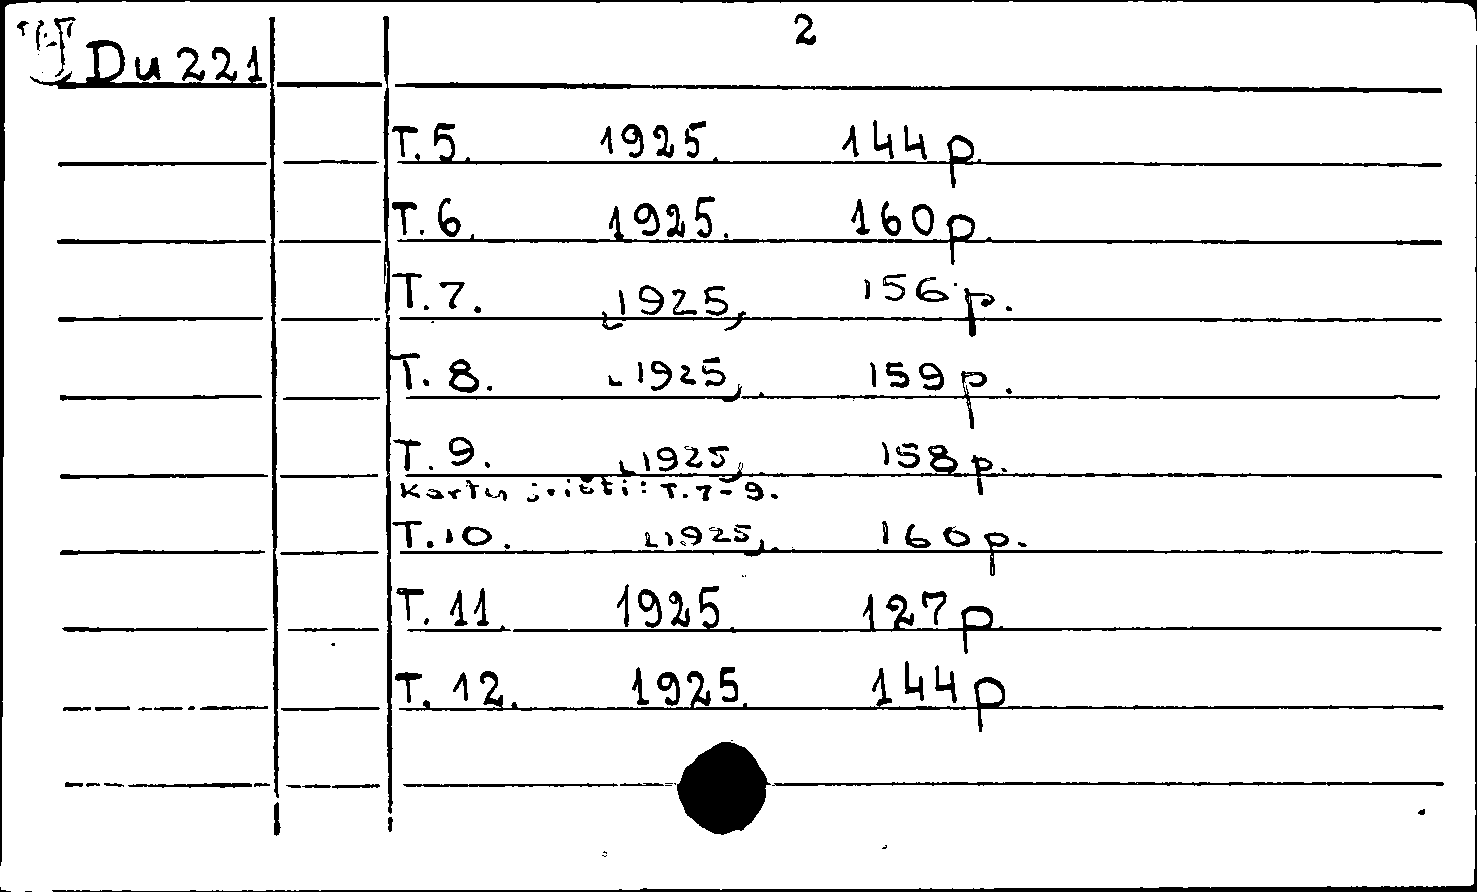 2
Du 221
T. 5. 1925. 144 p.
T. 6. 1925. 160 p.
T. 7. [1925] 156 p.
T. 8. [1925]. 159 p.
T. 9. [1925]. 158 p.
Kartu įrišti: T. 7-9.
T. 10. [1925]. 160 p.
T. 11. 1925. 127 p.
T. 12. 1925. 144 p